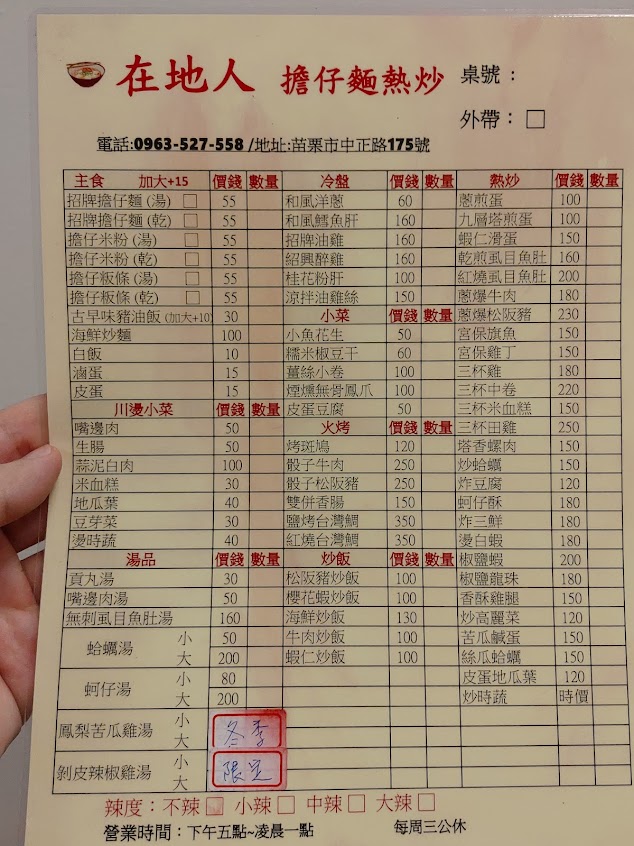 在地人 擔仔麵熱炒 桌號：
外帶：□
電話:0963-527-558 /地址:苗栗市中正路175號
主食 加大+15 價錢 數量
招牌擔仔麵(湯) □ 55
招牌擔仔麵(乾) □ 55
擔仔米粉(湯) □ 55
擔仔米粉(乾) □ 55
擔仔粄條(湯) □ 55
擔仔粄條(乾) □ 55
古早味豬油飯(加大+10) 30
海鮮炒麵 100
白飯 10
滷蛋 15
皮蛋 15
川燙小菜 價錢 數量
嘴邊肉 50
生腸 50
蒜泥白肉 100
米血糕 30
地瓜葉 40
豆芽菜 30
燙時蔬 40
湯品 價錢 數量
貢丸湯 30
嘴邊肉湯 50
無刺虱目魚肚湯 160
蛤蠣湯 小 50
大 200
蚵仔湯 小 80
大 200
鳳梨苦瓜雞湯 小
大
剝皮辣椒雞湯 小
大
冬季
限定
冷盤 價錢 數量
和風洋蔥 60
和風鱈魚肝 160
招牌油雞 160
紹興醉雞 160
桂花粉肝 100
涼拌油雞絲 150
小菜 價錢 數量
小魚花生 50
糯米椒豆干 60
薑絲小卷 100
煙燻無骨鳳爪 100
皮蛋豆腐 50
火烤 價錢 數量
烤斑鳩 120
骰子牛肉 250
骰子松阪豬 250
雙併香腸 150
鹽烤台灣鯛 350
紅燒台灣鯛 350
炒飯 價錢 數量
松阪豬炒飯 100
櫻花蝦炒飯 100
海鮮炒飯 130
牛肉炒飯 100
蝦仁炒飯 100
熱炒 價錢 數量
蔥煎蛋 100
九層塔煎蛋 100
蝦仁滑蛋 150
乾煎虱目魚肚 160
紅燒虱目魚肚 200
蔥爆牛肉 180
蔥爆松阪豬 230
宮保旗魚 150
宮保雞丁 150
三杯雞 180
三杯中卷 220
三杯米血糕 150
三杯田雞 250
塔香螺肉 150
炒蛤蠣 150
炸豆腐 120
蚵仔酥 180
炸三鮮 180
燙白蝦 180
椒鹽蝦 200
椒鹽龍珠 180
香酥雞腿 150
炒高麗菜 120
苦瓜鹹蛋 150
絲瓜蛤蠣 150
皮蛋地瓜葉 120
炒時蔬 時價
辣度：不辣□ 小辣□ 中辣□ 大辣□
營業時間：下午五點~凌晨一點 每周三公休